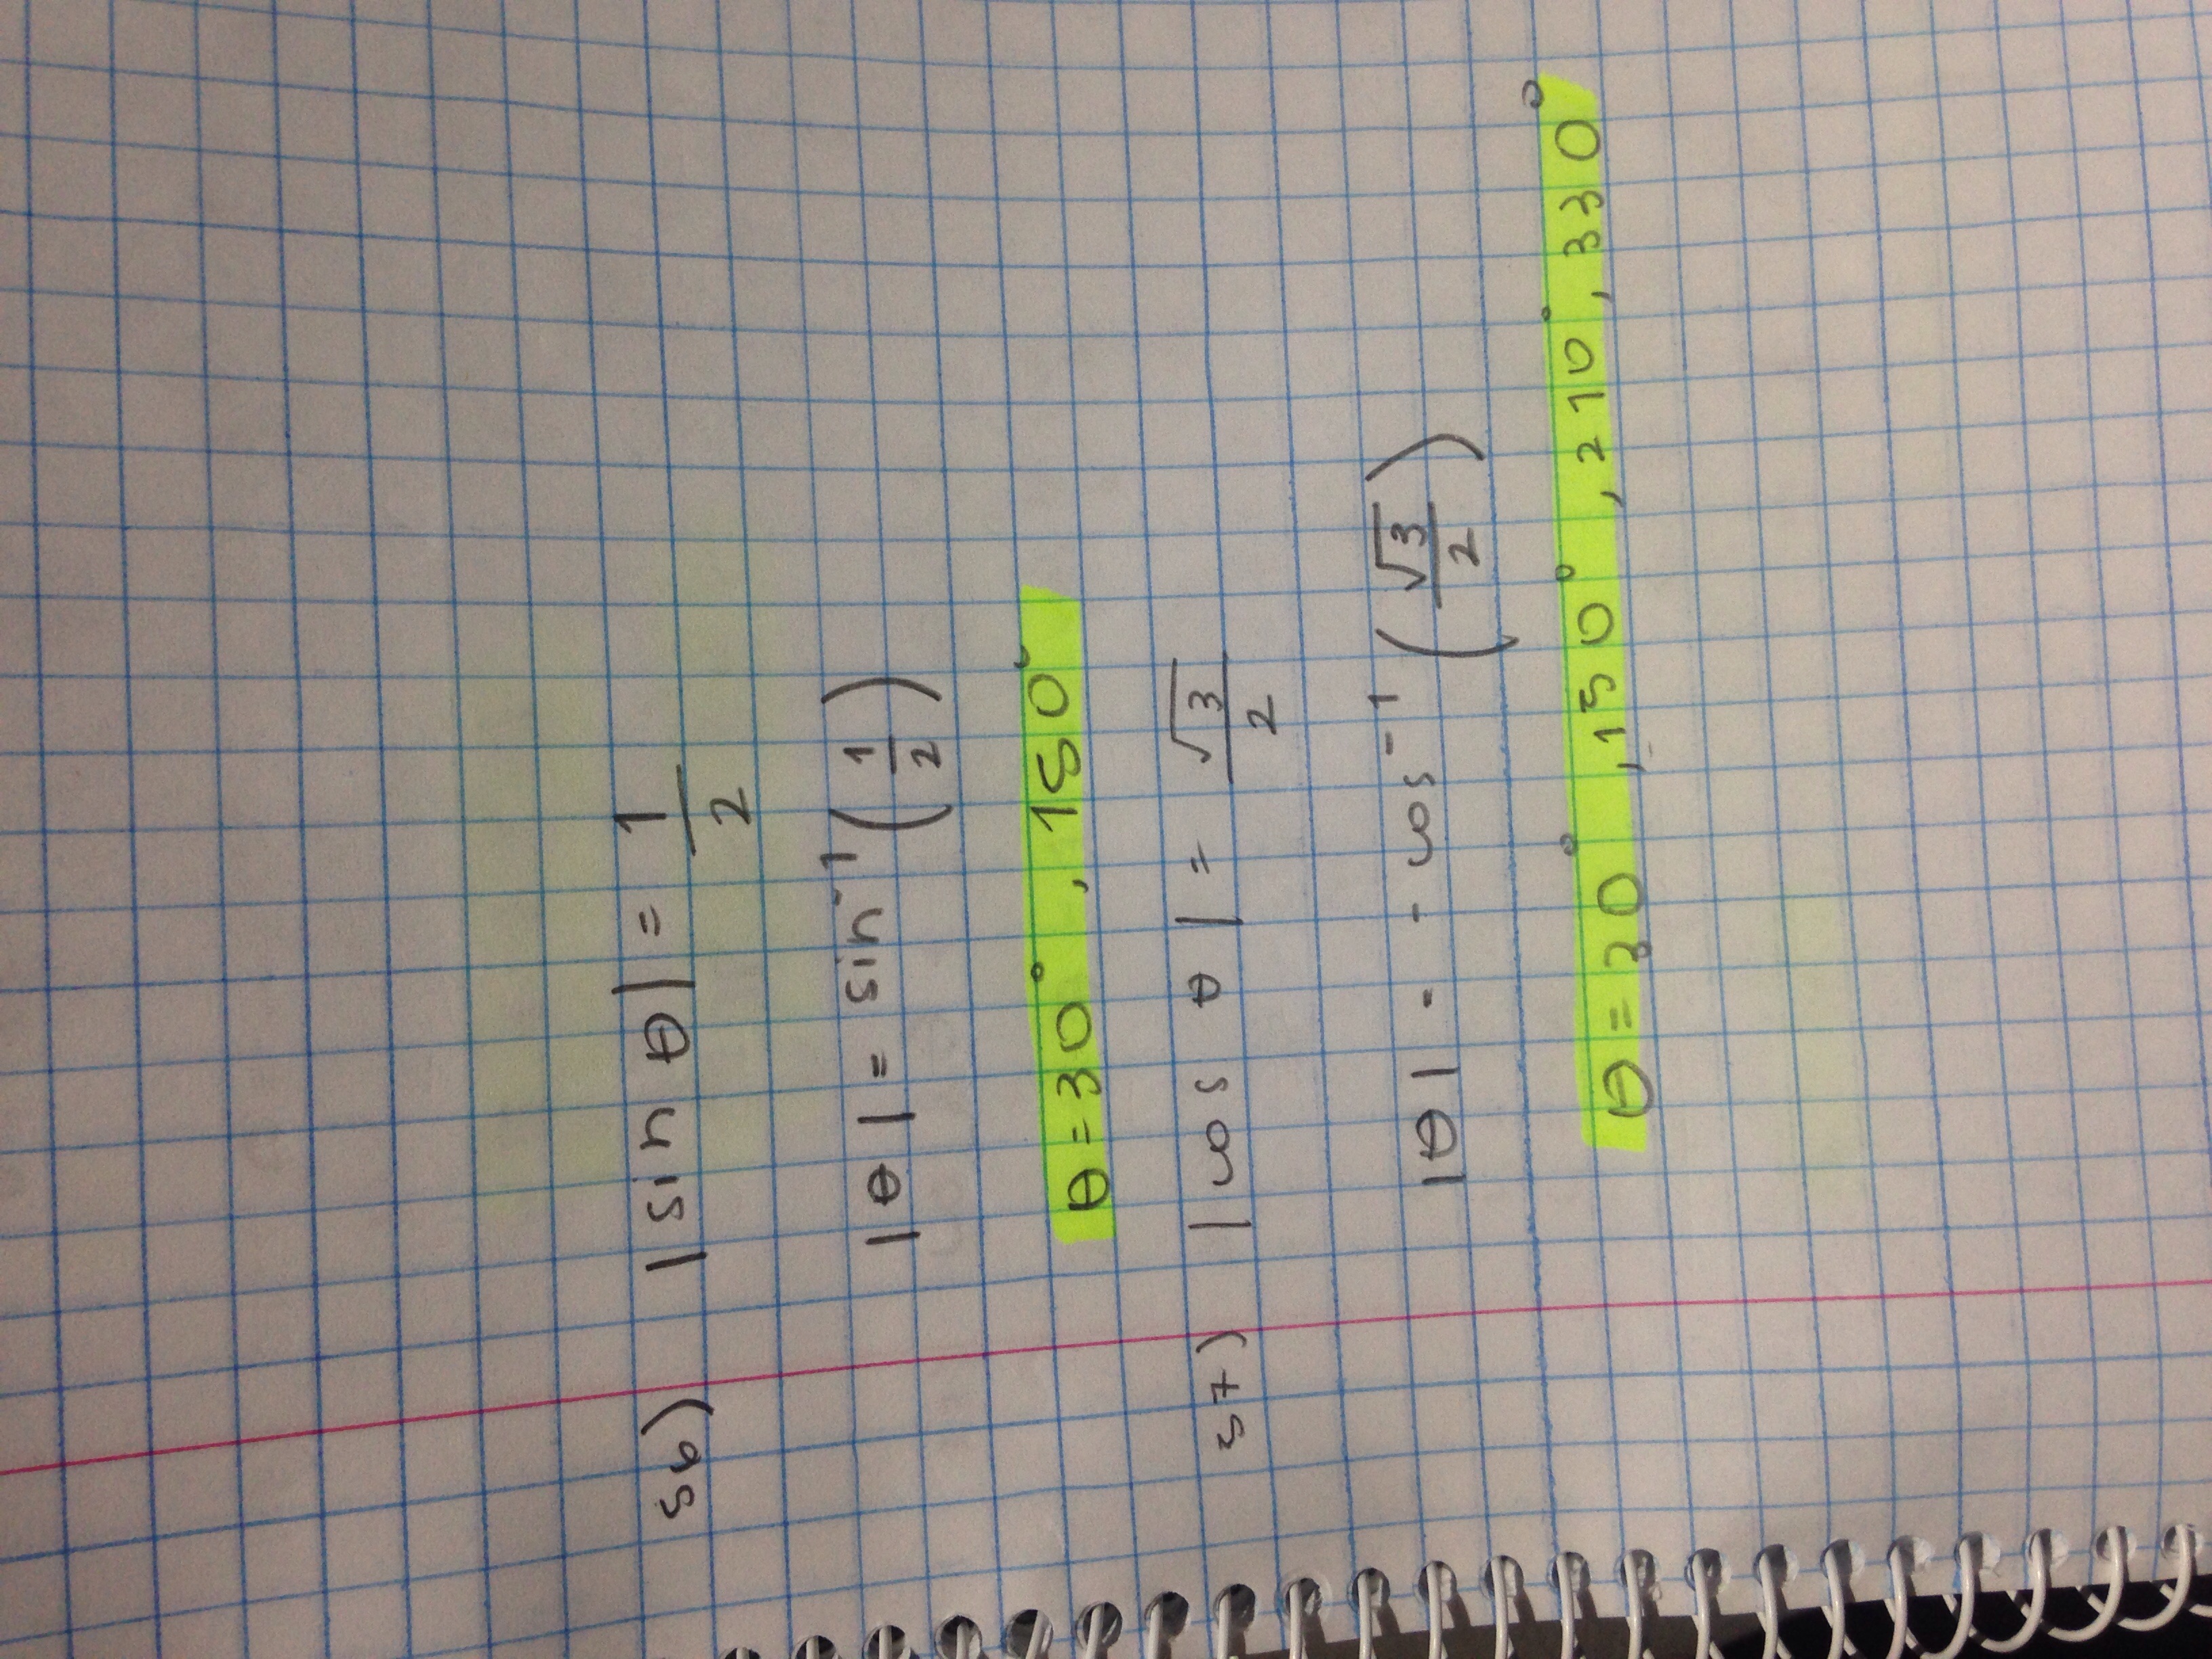 56) |sin θ| = 1/2
|θ| = sin⁻¹(1/2)
θ = 30°, 150°
57) |cos θ| = √3/2
|θ| = cos⁻¹(√3/2)
θ = 30°, 150°, 210°, 330°